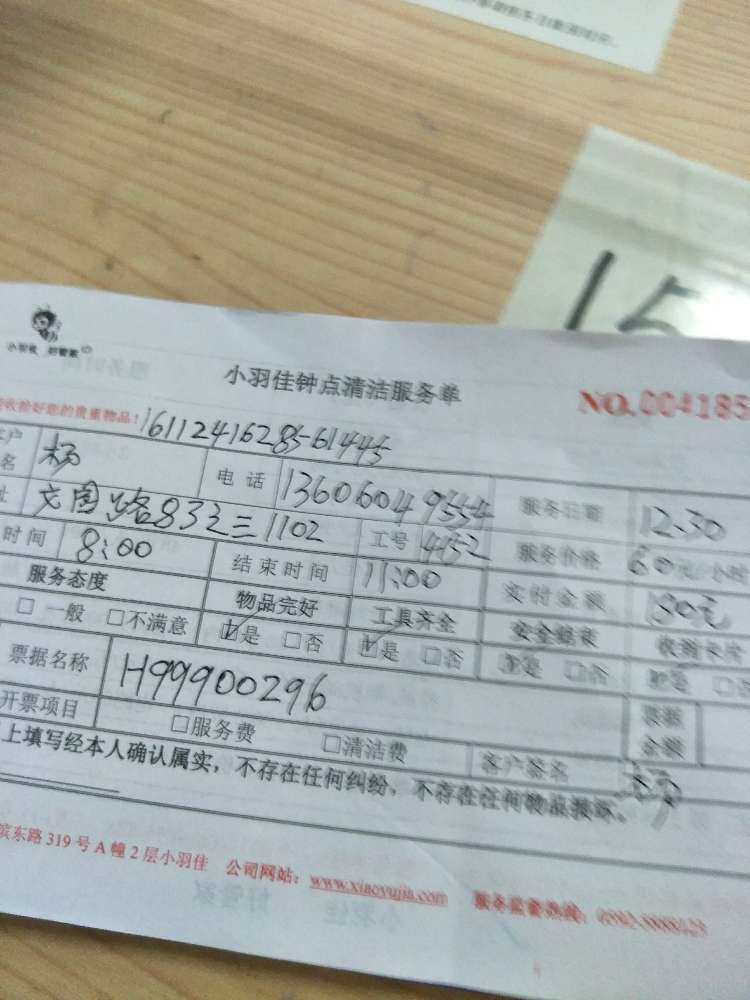 15
小羽佳 好管家
小羽佳钟点清洁服务单
NO.004185
收拾好您的贵重物品!
1611241628561445
户名 杨 电话 13606049554 服务日期 12.30
址 文园路83之三1102 工号 4152 服务价格 60元/小时
时间 8:00 结束时间 11:00 实付金额 180元
服务态度 物品完好 工具齐全 安全结束
□ 一般 □不满意 ☑是 □否 ☑是 □否 ☑是 □否 ☑是
票据名称 H99900296 票据金额
开票项目 □服务费 □清洁费 客户签名 杨
上填写经本人确认属实,不存在任何纠纷,不存在任何物品损坏。
滨东路319号A幢2层小羽佳 公司网站:www.xiaoyujia.com 服务监督热线: